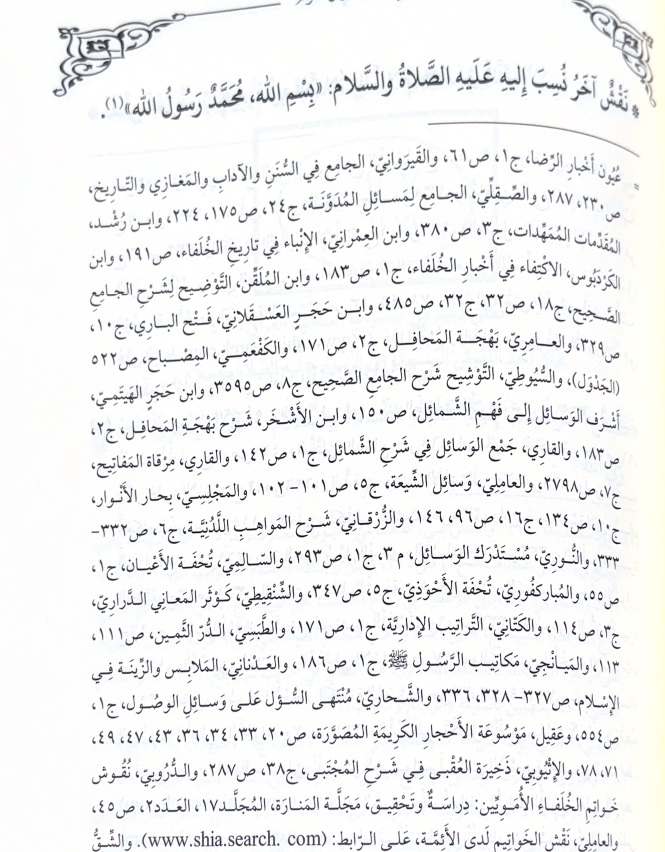 * نَقْشٌ آخَرُ نُسِبَ إِليهِ عَلَيهِ الصَّلاةُ والسَّلام: «بِسْمِ الله، مُحَمَّدٌ رَسُولُ الله»(١).
= عُيُون أَخْبار الرِّضا، ج١، ص٦١، والقَيرَوانِيّ، الجامِع فِي السُّنَنِ والآدابِ والمَغازِي والتّارِيخ،
ص٢٣٠، ٢٨٧، والصِّقِلِّيّ، الجـامِع لِمَسـائِلِ المُدَوَّنَـة، ج٢٤، ص١٧٥، ٢٢٤، وابـن رُشْـد،
المُقَدِّمات المُمَهِّدات، ج٣، ص٣٨٠، وابن العِمْرانِيّ، الإِنْباء فِي تارِيخِ الخُلَفاء، ص١٩١، وابن
الكَرْدَبُوس، الاكْتِفاء فِي أَخْبار الخُلَفاء، ج١، ص١٨٣، وابن المُلَقِّن، التَّوْضِيح لِشَرْحِ الجامِعِ
الصَّحِيح، ج١٨، ص٣٢، ج٣٢، ص٤٨٥، وابـن حَجَـرٍ العَسْـقَلانِيّ، فَـتْح البـارِي، ج١٠،
ص٣٢٩، والعـامِرِيّ، بَهْجَـة المَحافِـل، ج٢، ص١٧١، والكَفْعَمِـيّ، المِصْبـاح، ص٥٢٢
(الجَدْوَل)، والسُّيُوطِيّ، التَّوْشِيح شَرْح الجامِع الصَّحِيح، ج٨، ص٣٥٩٥، وابن حَجَرٍ الهَيتَمِيّ،
أَشْرَف الوَسائِل إِلـى فَهْـمِ الشَّـمائِل، ص١٥٠، وابـن الأَشْـخَر، شَـرْح بَهْجَـةِ المَحافِـل، ج٢،
ص١٨٣، والقارِي، جَمْع الوَسائِل فِي شَرْحِ الشَّمائِل، ج١، ص١٤٢، والقارِي، مِرْقاة المَفاتِيح،
ج٧، ص٢٧٩٨، والعامِلِيّ، وَسائِل الشِّيعَة، ج٥، ص١٠١- ١٠٢، والمَجْلِسِـيّ، بِحار الأَنْوار،
ج١٠، ص١٣٤، ج١٦، ص٩٦، ١٤٦، والزُّرْقـانِيّ، شَـرْح المَواهِـبِ اللَّدُنِيَّـة، ج٦، ص٣٣٢-
٣٣٣، والنُّـورِيّ، مُسْـتَدْرَك الوَسـائِل، م ٣، ج١، ص٢٩٣، والسّـالِمِيّ، تُحْفَـة الأَعْيـان، ج١،
ص٥٥، والمُباركفُورِيّ، تُحْفَة الأَحْوَذِيّ، ج٥، ص٣٤٧، والشِّنْقِيطِيّ، كَـوْثَر المَعـانِي الـدَّرارِيّ،
ج٣، ص١١٤، والكَتّانِيّ، التَّراتِيب الإِدارِيَّة، ج١، ص١٧١، والطَّبَسِيّ، الـدُّرّ الثَّمِـين، ص١١١،
١١٣، والمَيـانْجِيّ، مَكاتِيب الرَّسُـولِ ﷺ، ج١، ص١٨٦، والعَـدْنانِيّ، المَلابِـس والزِّينَة فِـي
الإِسْلام، ص٣٢٧- ٣٢٨، ٣٣٦، والشَّـحارِيّ، مُنْتَهـى السُّـؤل عَلـى وَسـائِلِ الوُصُـول، ج١،
ص٥٥٤، وعَقِيل، مَوْسُوعَة الأَحْجارِ الكَرِيمَةِ المُصَوَّرَة، ص٢٠، ٣٣، ٣٤، ٣٦، ٤٣، ٤٧، ٤٩،
٧١، ٧٨، والإِثْيُوبِيّ، ذَخِيرَة العُقْبـى فِـي شَـرْحِ المُجْتَبـى، ج٣٨، ص٢٨٧، والـدُّرُوبِيّ، نُقُـوش
خَـواتِمِ الخُلَفـاءِ الأُمَـوِيِّين: دِراسَـةٌ وتَحْقِيـق، مَجَلَّـة المَنـارَة، المُجَلَّـد١٧، العَـدَد٢، ص٤٥،
والعامِلِيّ، نَقْش الخَواتِيمِ لَدى الأَئِمَّـة، عَلـى الـرّابِط: (www.shia.search. com). والشِّـقُّ